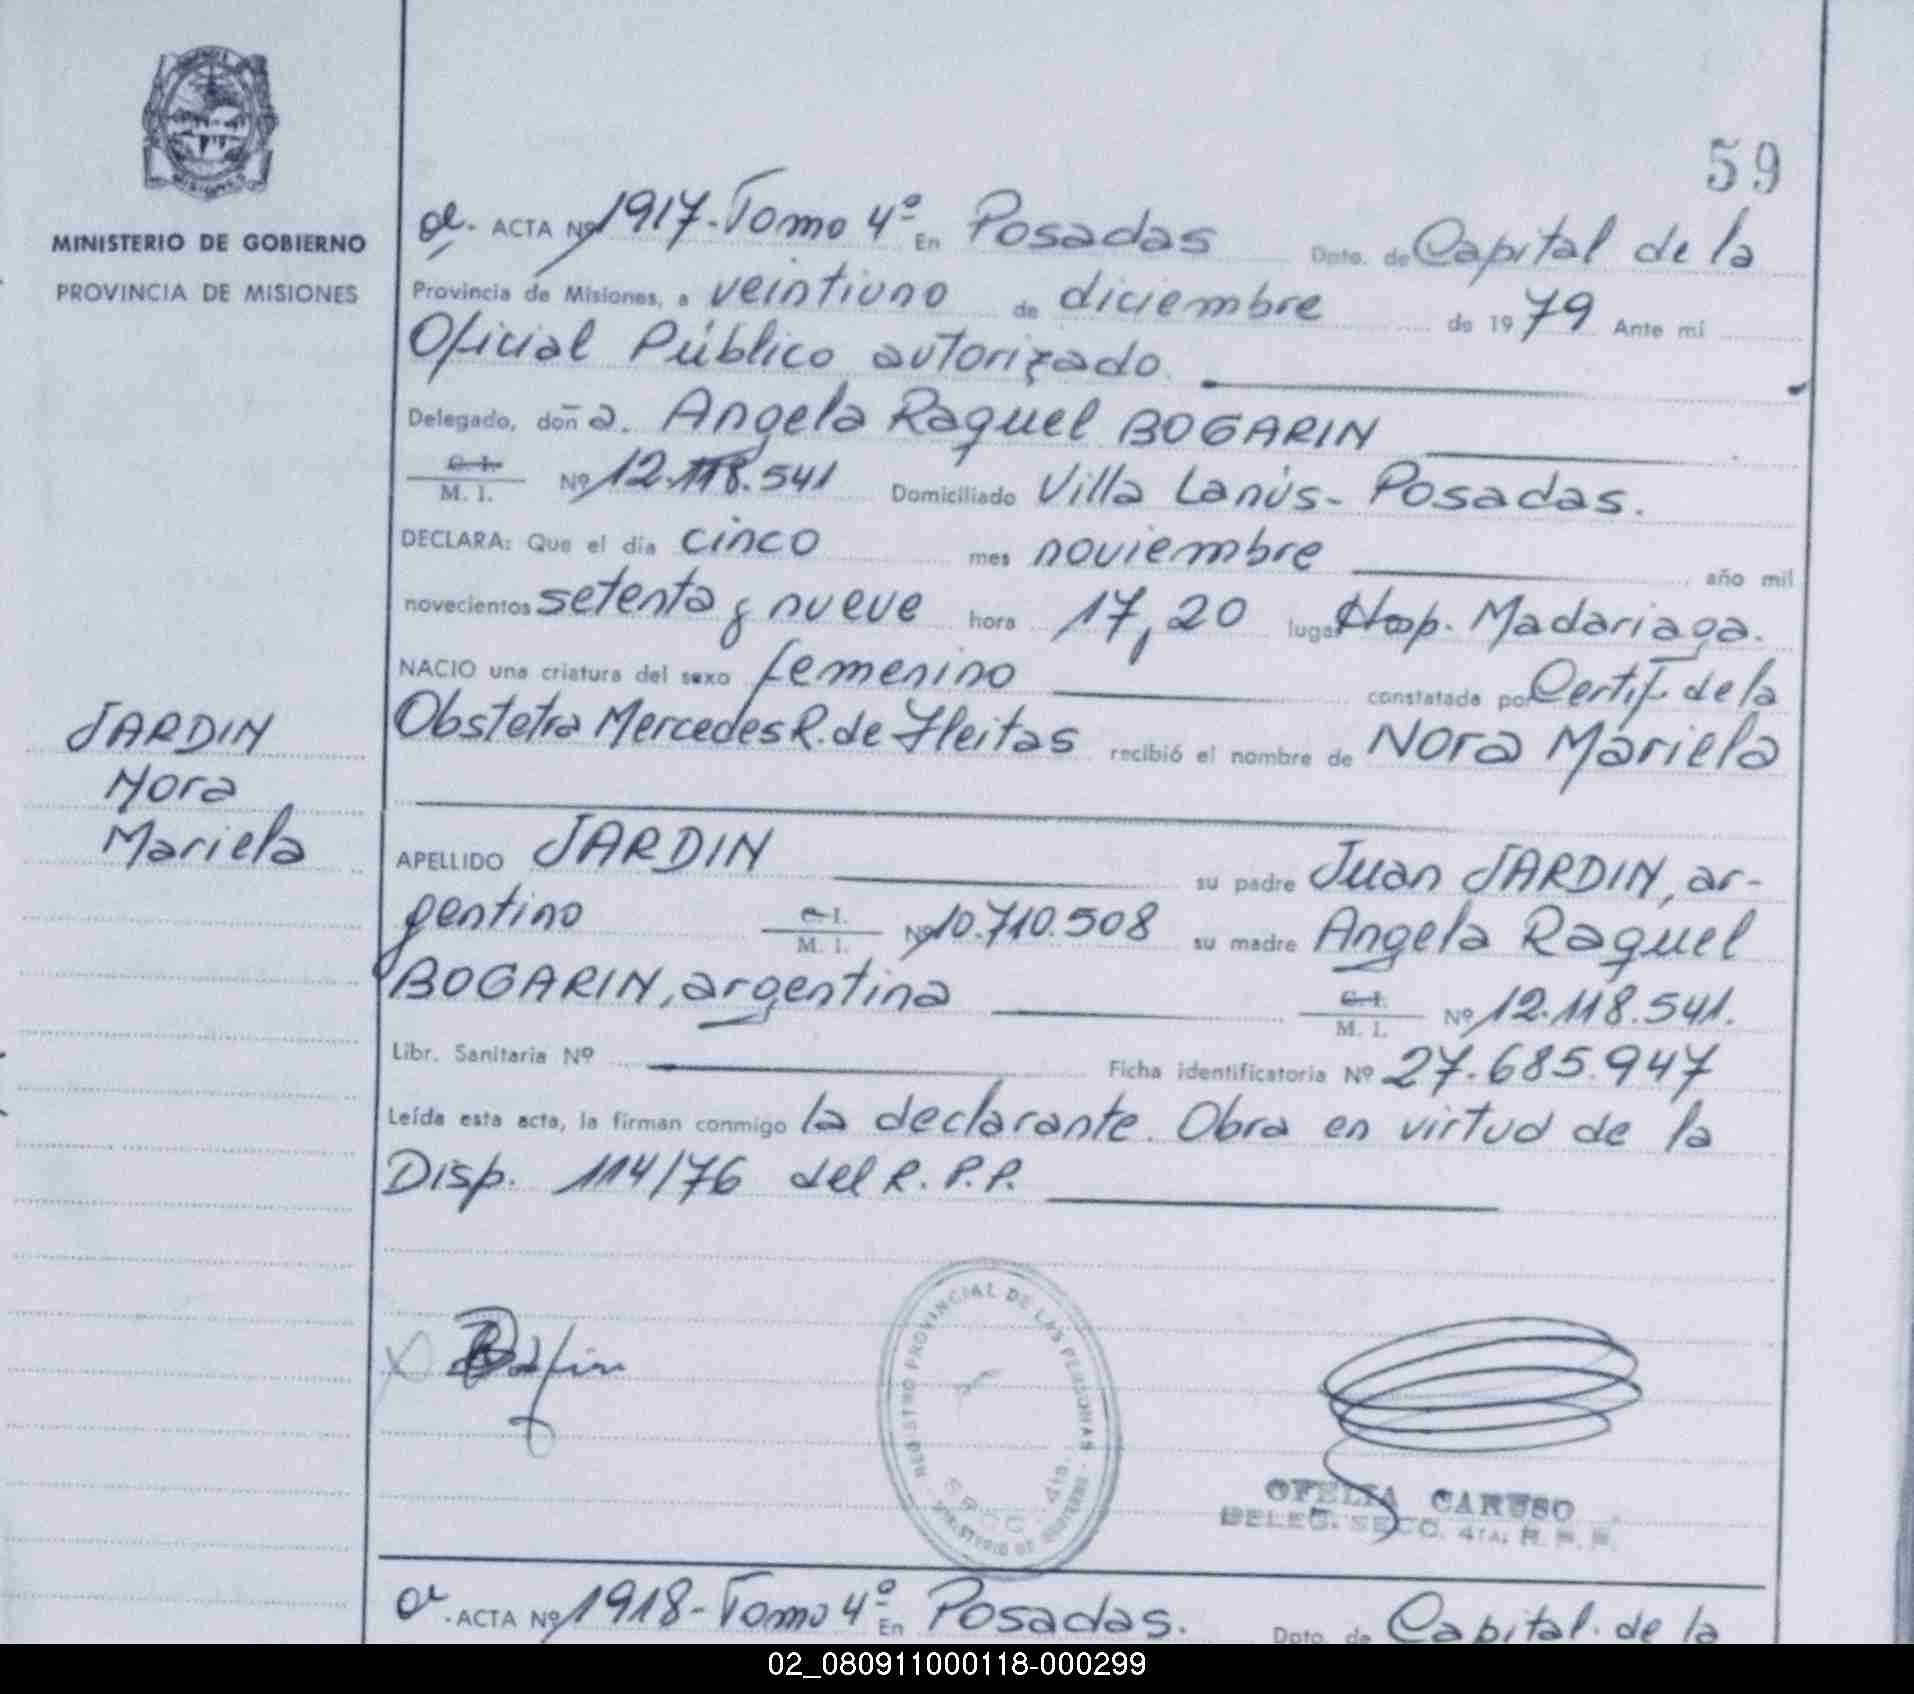 MISIONES
MINISTERIO DE GOBIERNO
PROVINCIA DE MISIONES
59
ACTA Nº 1917-Tomo 4º En Posadas Dpto. de Capital de la
Provincia de Misiones, a veintiuno de diciembre de 1979 Ante mí
Oficial Público autorizado.
Delegado, doña. Angela Raquel BOGARIN
C. I.
M. I. Nº 12.118.541 Domiciliado Villa Lanús- Posadas.
DECLARA: Que el día cinco mes noviembre año mil
novecientos setenta y nueve hora 17,20 lugar Hosp. Madariaga.
NACIO una criatura del sexo femenino constatada por Certif. de la
Obstetra Mercedes R. de Fleitas recibió el nombre de Nora Mariela
JARDIN
Nora
Mariela
APELLIDO JARDIN su padre Juan JARDIN, ar-
gentino C. I.
M. I. Nº 10.710.508 su madre Angela Raquel
BOGARIN, argentina C. I.
M. I. Nº 12.118.541.
Libr. Sanitaria Nº Ficha identificatoria Nº 27.685.947
Leída esta acta, la firman conmigo la declarante. Obra en virtud de la
Disp. 114/76 del R. P. P.
REGISTRO PROVINCIAL DE LAS PERSONAS
MINISTERIO DE GOBIERNO
SECC. 4ta.
OFELIA CARUSO
DELEG. SECC. 4TA. R. P. P.
ACTA Nº 1918-Tomo 4º En Posadas. Dpto. de Capital. de la
02_080911000118-000299